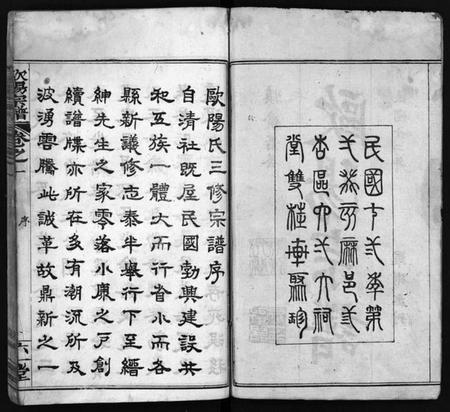 民國十年第
麻邑
杏區大祠
堂雙桂聚珍
歐陽氏三修宗譜序
自清社既屋民國勃興建設共
和五族一體大而行省小而各
縣新議修志泰半舉行下至縉
紳先生之家零落小康之戶創
續譜牒亦所在多有潮流所及
波湧雲騰此誠革故鼎新之一
宗譜
卷之一
序
六一堂